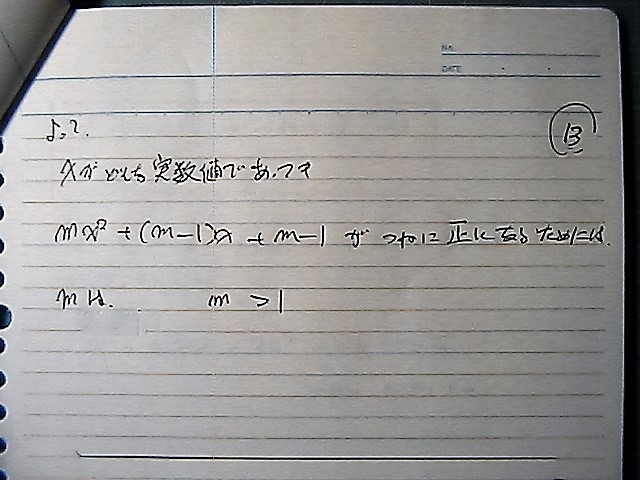 NO.
DATE
13
よって.
xがどんな実数値であっても
mx² + (m-1)x + m-1 が つねに正になるためには.
mは. m > 1